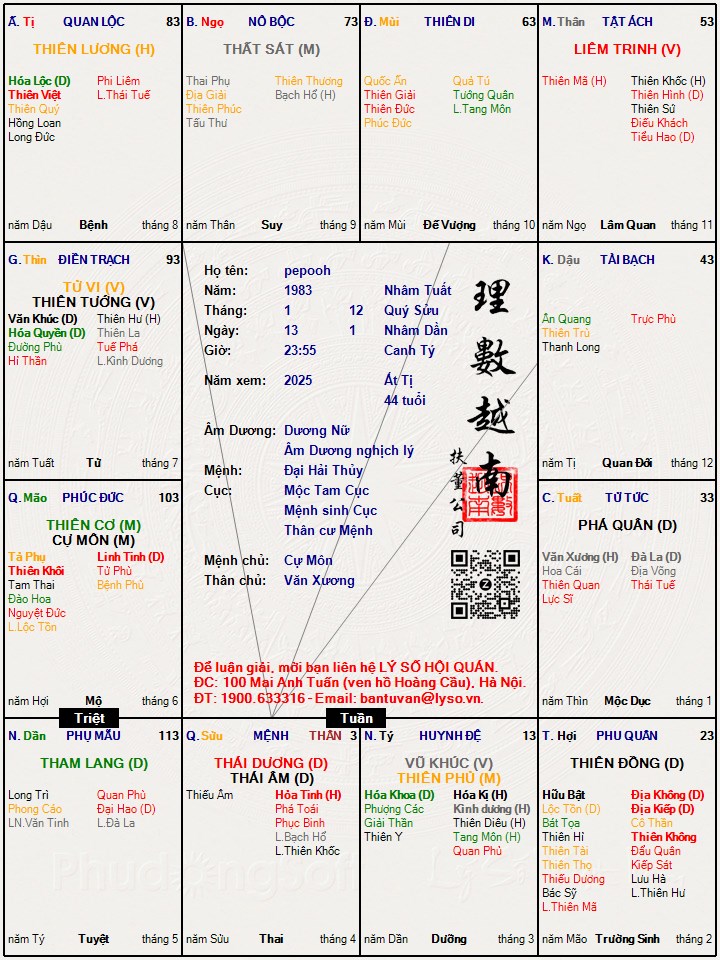 Ấ. Tị QUAN LỘC 83
THIÊN LƯƠNG (H)
Hóa Lộc (D) Phi Liêm
Thiên Việt L.Thái Tuế
Thiên Quý
Hồng Loan
Long Đức
năm Dậu Bệnh tháng 8
B. Ngọ NÔ BỘC 73
THẤT SÁT (M)
Thai Phụ Thiên Thương
Địa Giải Bạch Hổ (H)
Thiên Phúc
Tấu Thư
năm Thân Suy tháng 9
Đ. Mùi THIÊN DI 63
Quốc Ấn Quả Tú
Thiên Giải Tướng Quân
Thiên Đức L.Tang Môn
Phúc Đức
năm Mùi Đế Vượng tháng 10
M. Thân TẬT ÁCH 53
LIÊM TRINH (V)
Thiên Mã (H) Thiên Khốc (H)
Thiên Hình (D)
Thiên Sứ
Điếu Khách
Tiểu Hao (D)
năm Ngọ Lâm Quan tháng 11
G. Thìn ĐIỀN TRẠCH 93
TỬ VI (V)
THIÊN TƯỚNG (V)
Văn Khúc (D) Thiên Hư (H)
Hóa Quyền (D) Thiên La
Đường Phù Tuế Phá
Hỉ Thần L.Kình Dương
năm Tuất Tử tháng 7
Họ tên: pepooh
Năm: 1983 Nhâm Tuất
Tháng: 1 12 Quý Sửu
Ngày: 13 1 Nhâm Dần
Giờ: 23:55 Canh Tý
Năm xem: 2025 Ất Tị
44 tuổi
Âm Dương: Dương Nữ
Âm Dương nghịch lý
Mệnh: Đại Hải Thủy
Cục: Mộc Tam Cục
Mệnh sinh Cục
Thân cư Mệnh
Mệnh chủ: Cự Môn
Thân chủ: Văn Xương
理數越南
扶董公司
Để luận giải, mời bạn liên hệ LÝ SỐ HỘI QUÁN.
ĐC: 100 Mai Anh Tuấn (ven hồ Hoàng Cầu), Hà Nội.
ĐT: 1900.633316 - Email: bantuvan@lyso.vn.
K. Dậu TÀI BẠCH 43
Ân Quang Trực Phù
Thiên Trù
Thanh Long
năm Tị Quan Đới tháng 12
Q. Mão PHÚC ĐỨC 103
THIÊN CƠ (M)
CỰ MÔN (M)
Tả Phụ Linh Tinh (D)
Thiên Khôi Tử Phù
Tam Thai Bệnh Phù
Đào Hoa
Nguyệt Đức
L.Lộc Tồn
năm Hợi Mộ tháng 6
C. Tuất TỬ TỨC 33
PHÁ QUÂN (D)
Văn Xương (H) Đà La (D)
Hoa Cái Địa Võng
Thiên Quan Thái Tuế
Lực Sĩ
năm Thìn Mộc Dục tháng 1
Triệt
Tuần
N. Dần PHỤ MẪU 113
THAM LANG (D)
Long Trì Quan Phù
Phong Cáo Đại Hao (D)
LN.Văn Tinh L.Đà La
năm Tý Tuyệt tháng 5
Q. Sửu MỆNH THÂN 3
THÁI DƯƠNG (D)
THÁI ÂM (D)
Thiếu Âm Hỏa Tinh (H)
Phá Toái
Phục Binh
L.Bạch Hổ
L.Thiên Khốc
năm Sửu Thai tháng 4
N. Tý HUYNH ĐỆ 13
VŨ KHÚC (V)
THIÊN PHỦ (M)
Hóa Khoa (D) Hóa Kị (H)
Phượng Các Kình dương (H)
Giải Thần Thiên Diêu (H)
Thiên Y Tang Môn (H)
Quan Phủ
năm Dần Dưỡng tháng 3
T. Hợi PHU QUÂN 23
THIÊN ĐỒNG (D)
Hữu Bật Địa Không (D)
Lộc Tồn (D) Địa Kiếp (D)
Bát Tọa Cô Thần
Thiên Hỉ Thiên Không
Thiên Tài Đẩu Quân
Thiên Thọ Kiếp Sát
Thiếu Dương Lưu Hà
Bác Sỹ L.Thiên Hư
L.Thiên Mã
năm Mão Trường Sinh tháng 2